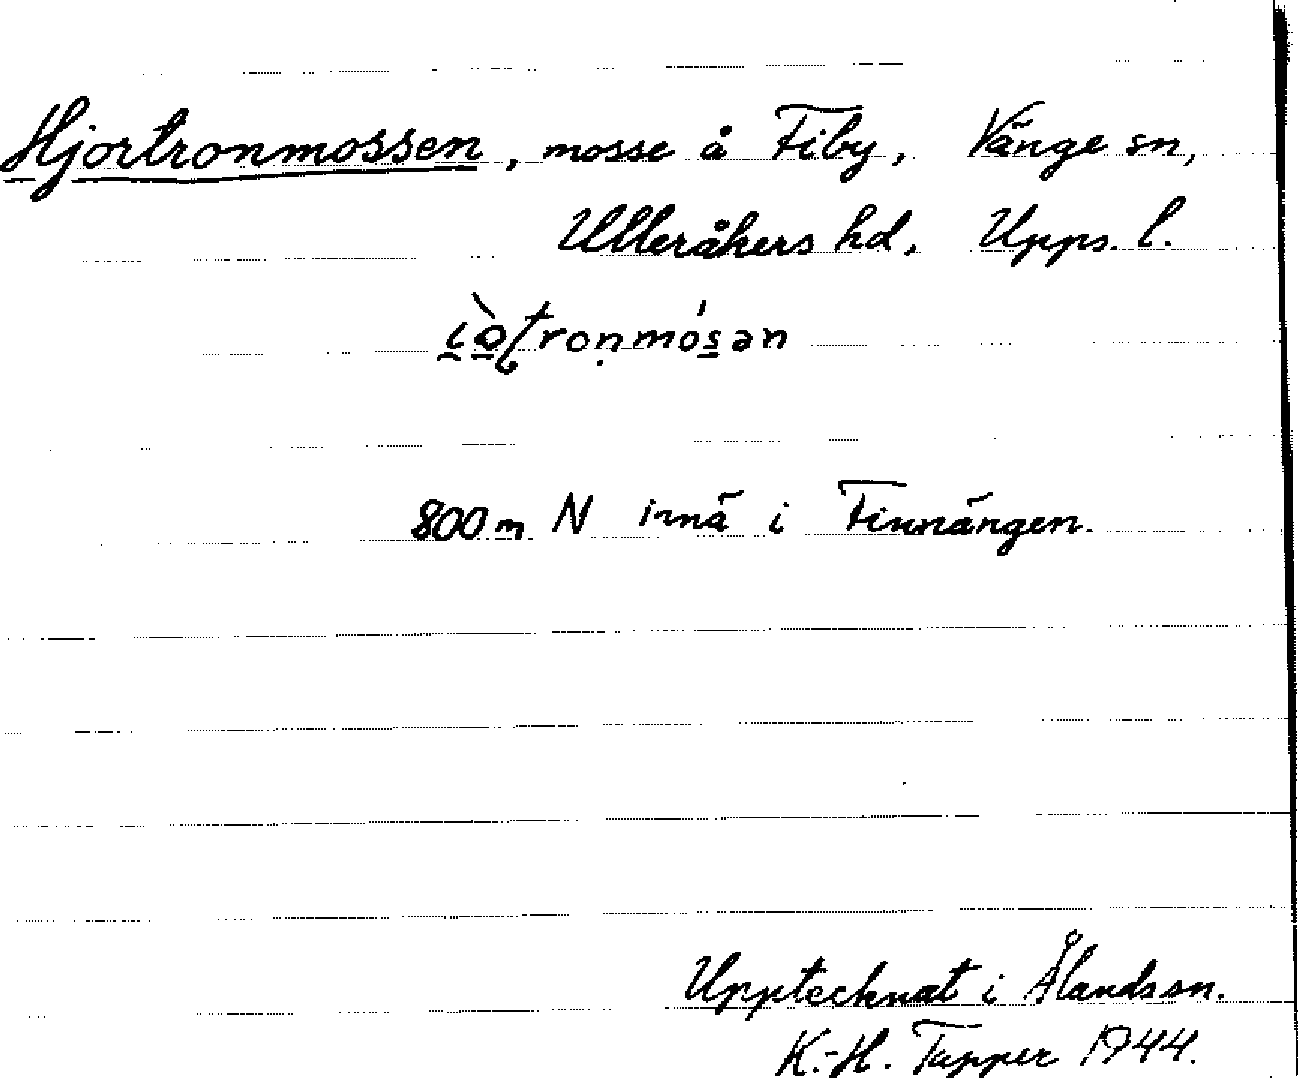 Hjortronmossen, mosse å Fiby, Vänge sn,
Ulleråkers hd, Upps. l.
800 m N innä i Finnängen.
Upptecknat i Ålands sn.
K.-H. Tapper 1944.